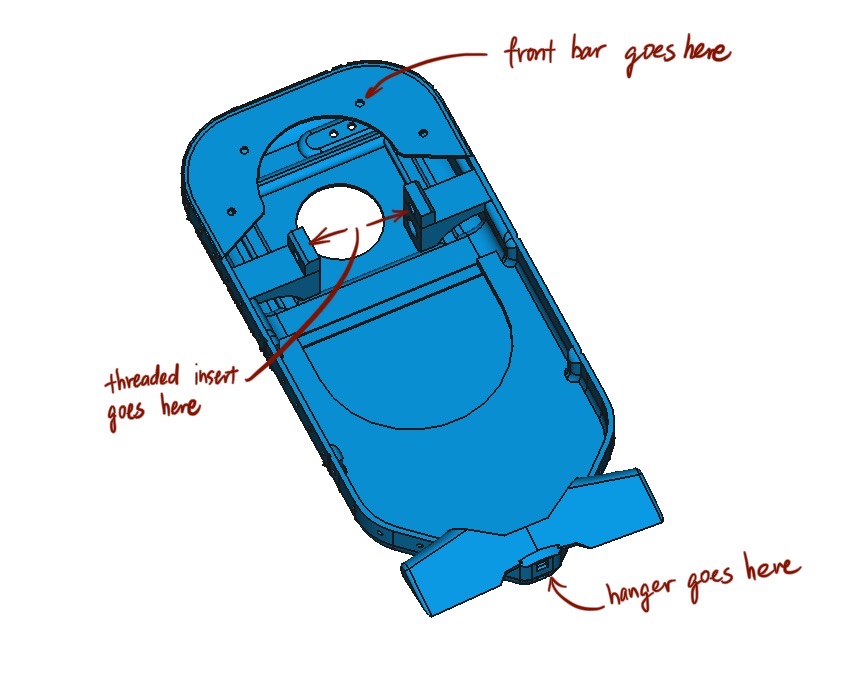 front bar goes here
threaded insert
goes here
hanger goes here